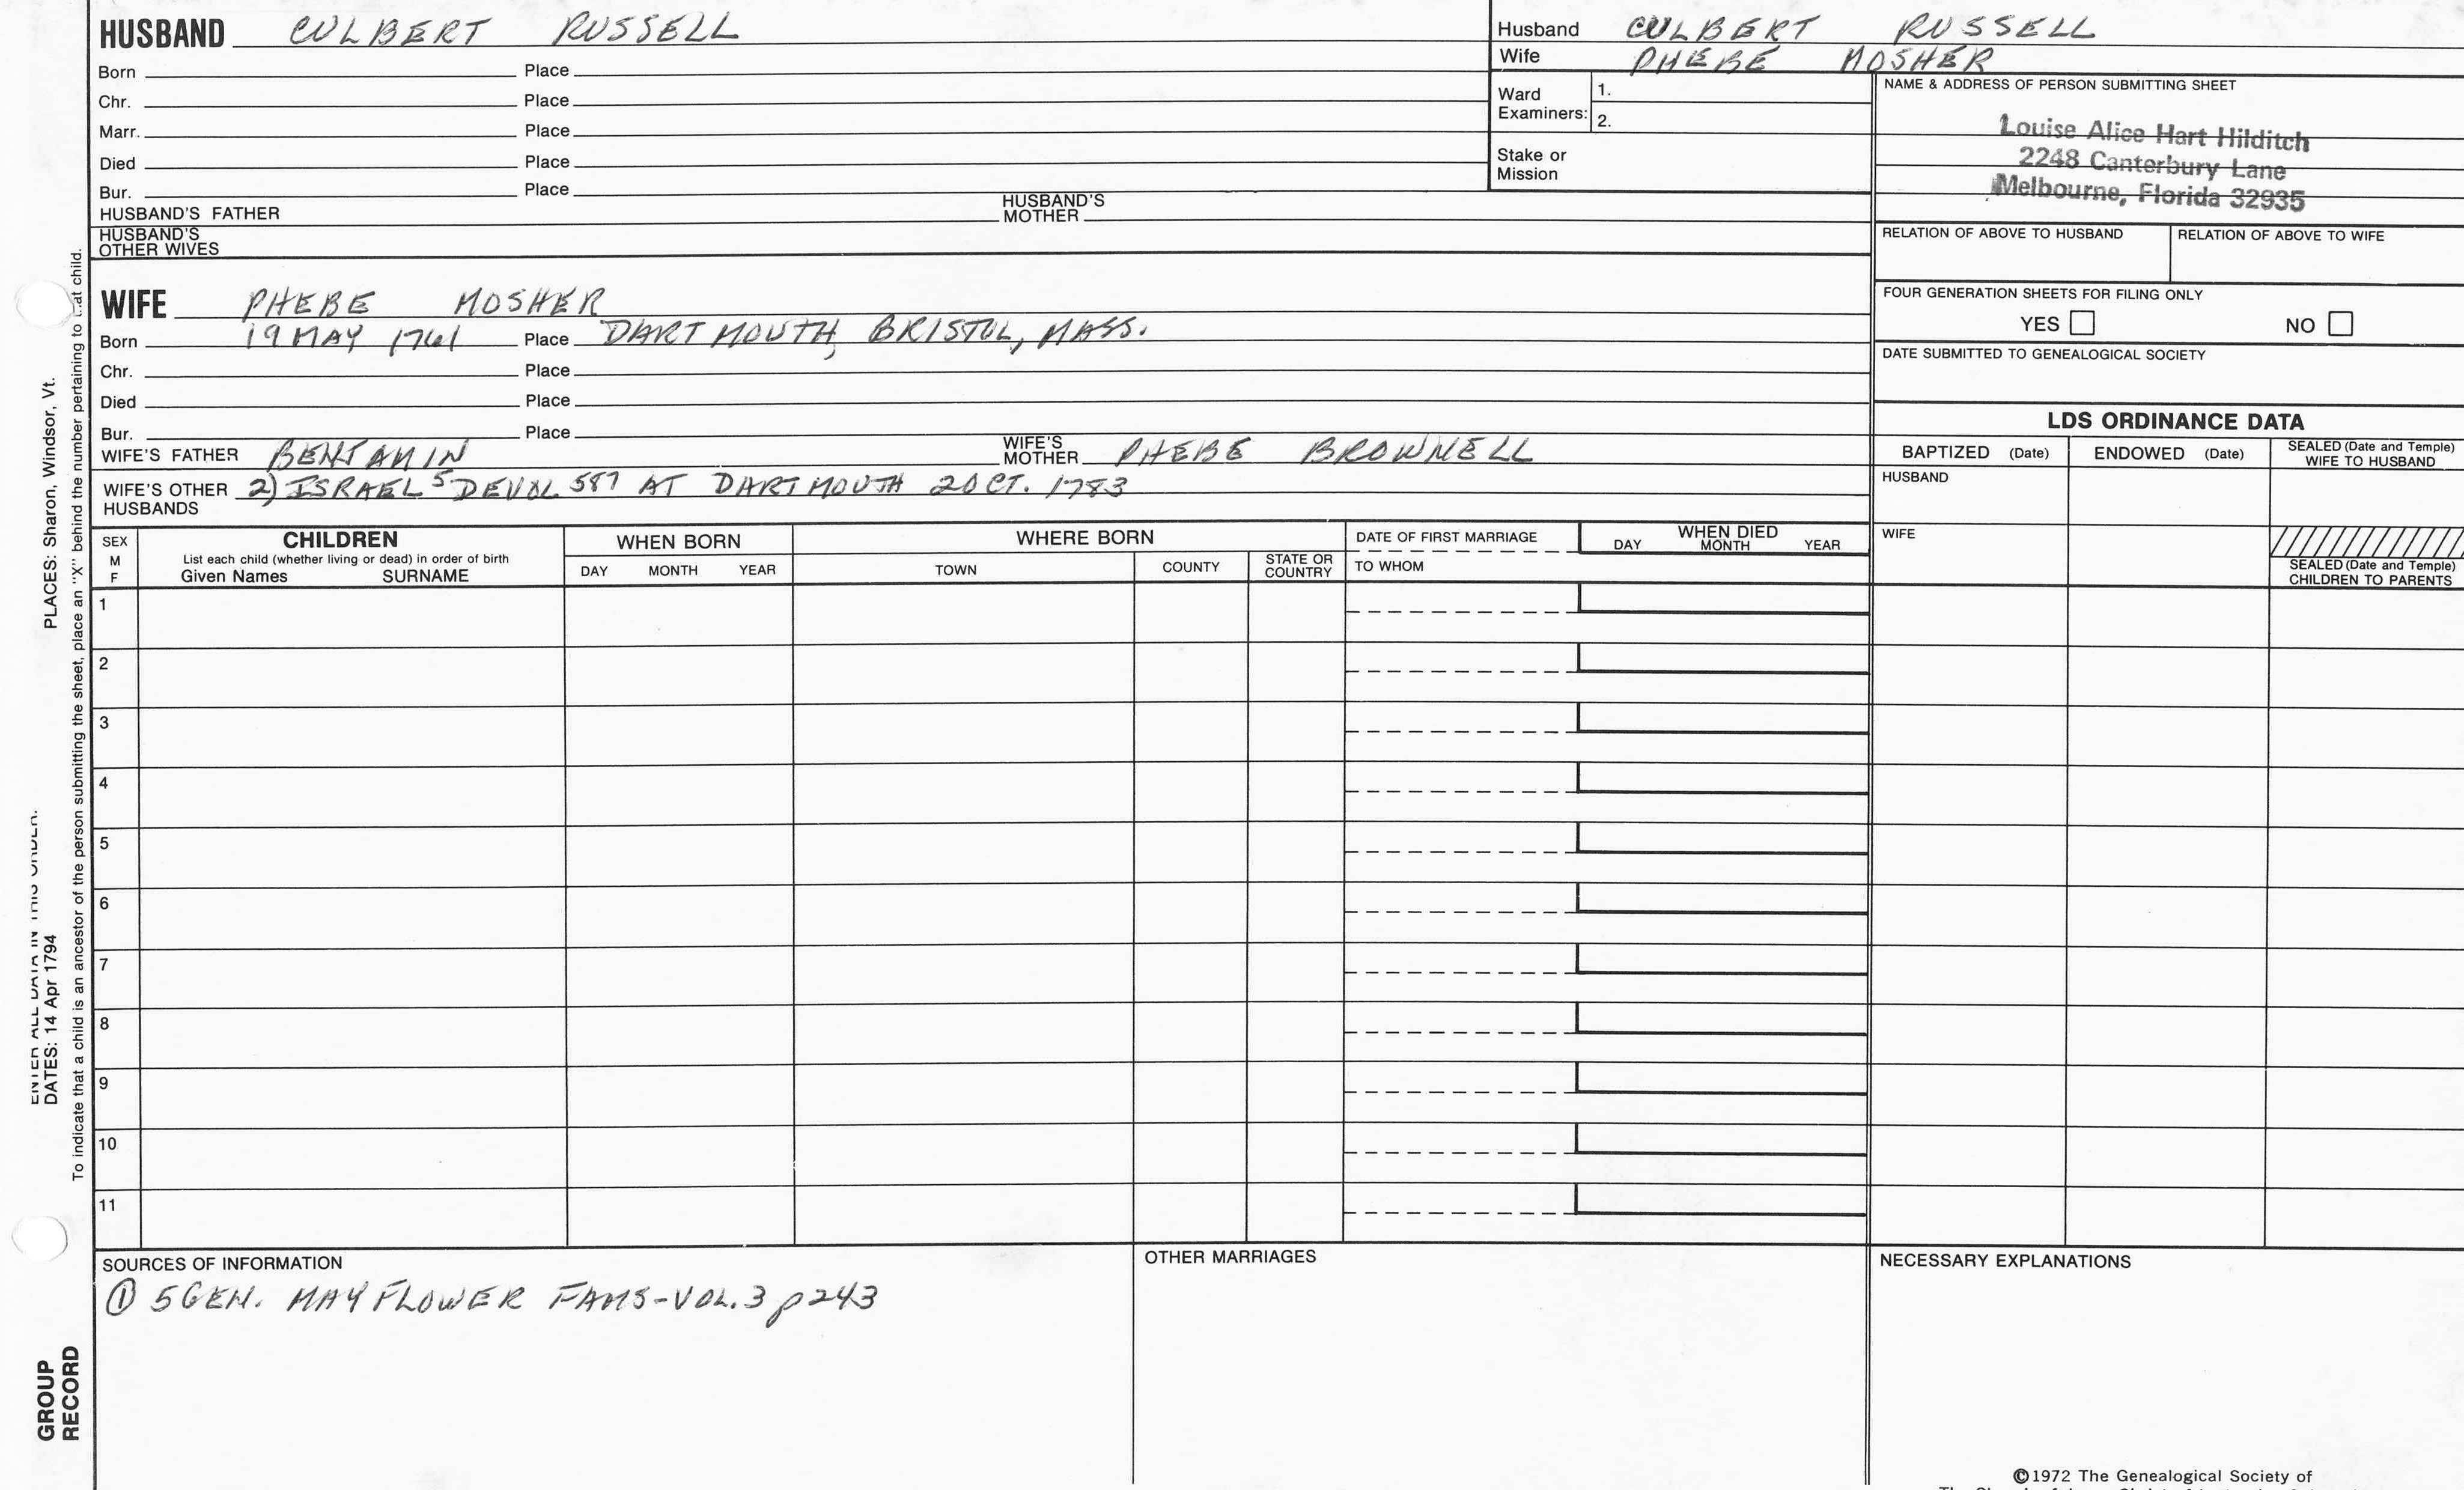 HUSBAND CULBERT RUSSELL
Born Place
Chr. Place
Marr. Place
Died Place
Bur. Place
HUSBAND'S FATHER HUSBAND'S MOTHER
HUSBAND'S OTHER WIVES
Husband CULBERT RUSSELL
Wife PHEBE MOSHER
Ward Examiners: 1.
2.
Stake or Mission
NAME & ADDRESS OF PERSON SUBMITTING SHEET
Louise Alice Hart Hilditch
2248 Canterbury Lane
Melbourne, Florida 32935
RELATION OF ABOVE TO HUSBAND RELATION OF ABOVE TO WIFE
FOUR GENERATION SHEETS FOR FILING ONLY
YES NO
DATE SUBMITTED TO GENEALOGICAL SOCIETY
WIFE PHEBE MOSHER
Born 19 MAY 1761 Place DARTMOUTH, BRISTOL, MASS.
Chr. Place
Died Place
Bur. Place
WIFE'S FATHER BENJAMIN WIFE'S MOTHER PHEBE BROWNELL
WIFE'S OTHER HUSBANDS 2) ISRAEL 5 DEVOL 587 AT DARTMOUTH 2 OCT. 1783
LDS ORDINANCE DATA
BAPTIZED (Date) ENDOWED (Date) SEALED (Date and Temple) WIFE TO HUSBAND
HUSBAND
WIFE
SEALED (Date and Temple)
CHILDREN TO PARENTS
SEX M F
CHILDREN
List each child (whether living or dead) in order of birth
Given Names SURNAME
WHEN BORN
DAY MONTH YEAR
WHERE BORN
TOWN COUNTY STATE OR COUNTRY
DATE OF FIRST MARRIAGE
TO WHOM
WHEN DIED
DAY MONTH YEAR
1
2
3
4
5
6
7
8
9
10
11
SOURCES OF INFORMATION
① 5 GEN. MAYFLOWER FAMS-VOL.3 p243
OTHER MARRIAGES
NECESSARY EXPLANATIONS
©1972 The Genealogical Society of
ENTER ALL DATA IN THIS ORDER:
DATES: 14 Apr 1794 PLACES: Sharon, Windsor, Vt.
To indicate that a child is an ancestor of the person submitting the sheet, place an "X" behind the number pertaining to that child.
GROUP
RECORD